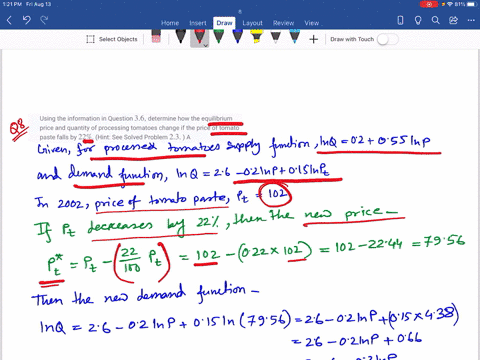 1:21 PM Fri Aug 13
81%
Home Insert Draw Layout Review View
Select Objects
Draw with Touch
Q8
Using the information in Question 3.6, determine how the equilibrium
price and quantity of processing tomatoes change if the price of tomato
paste falls by 22%. (Hint: See Solved Problem 2.3.) A
Given, for processed tomatoes supply function, lnQ = 0.2 + 0.55 lnP
and demand function, lnQ = 2.6 - 0.2 lnP + 0.15 lnPt
In 2002, price of tomato paste, Pt = 102
If Pt decreases by 22%, then the new price -
Pt* = Pt - (22/100 Pt) = 102 - (0.22 × 102) = 102 - 22.44 = 79.56
Then the new demand function -
lnQ = 2.6 - 0.2 lnP + 0.15 ln (79.56) = 2.6 - 0.2 lnP + (0.15 × 4.38)
= 2.6 - 0.2 lnP + 0.66